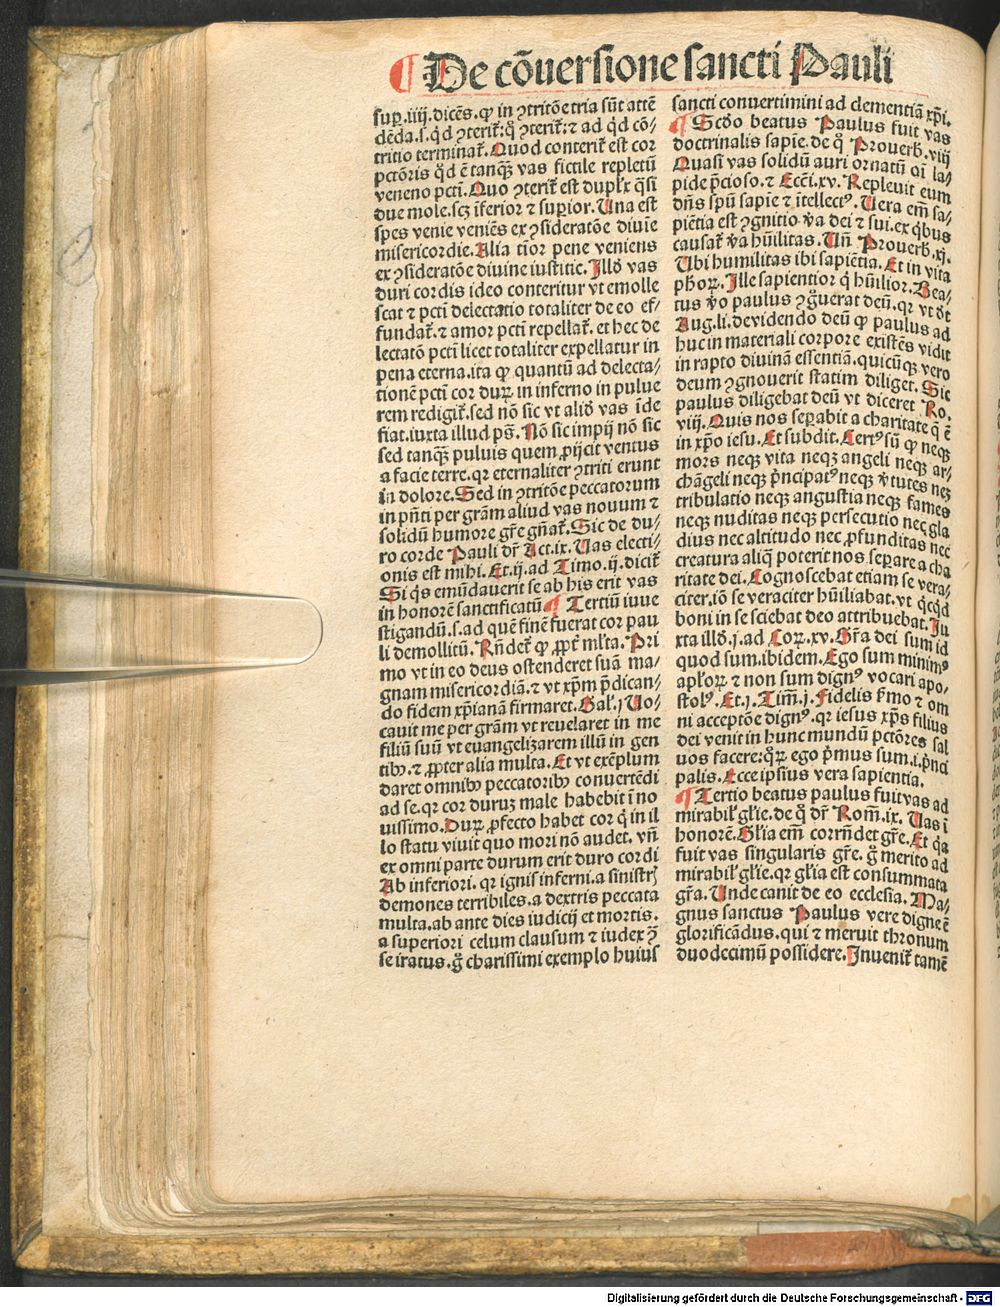 ¶ De cōuersione sancti Pauli
suꝑ. iiij. dicēs. ꝙ in ꝯtritōe tria sūt attē
dēda. s. qd̓ ꝯterit̃: q̊ ꝯterit̃: ⁊ ad qd̓ cō⸗
tritio terminat̃. Quod conterit̃ est cor
pctōris qd̓ ē tanqȝ vas fictile repletū
veneno pcti. Quo ꝯterit̃ est duplx̓ q̓si
due mole. scȝ īferior ⁊ suꝑior. Una est
spes venie veniēs ex ꝯsideratōe diuīe
misericordie. Alia tīor pene veniens
ex ꝯsideratōe diuine iusticie. Illd̓ vas
duri cordis ideo conteritur vt emolle
scat ⁊ pcti delectatio totaliter de eo ef⸗
fundat̃. ⁊ amor pcti repellat̃. et hec de
lectatō pcti licet totaliter expellatur in
pena eterna. ita ꝙ quantū ad delecta⸗
tionē pcti cor duꝝ in inferno in pulue
rem redigit̃. sed nō sic vt alid̓ vas īde
fiat. iuxta illud ps̄. Nō sic impij nō sic
sed tanqȝ puluis quem ꝓijcit ventus
a facie terre. qr eternaliter ꝯtriti erunt
in dolore. Sed in ꝯtritōe peccatorum
in pn̄ti per grām aliud vas nouum ⁊
solidū humore gr̄e gn̄at̃. Sic de du⸗
ro corde Pauli dr̄ Act. ix. Uas electi⸗
onis est mihi. Et. ij. ad Timo. ij. dicit̃
Si q̓s emūdauerit se ab his erit vas
in honorē sanctificatū ¶ Tertiū iuue
stigandū. s. ad quē finē fuerat cor pau
li demollitū. Rn̄det̃ ꝙ ꝓpt̃ ml̓ta. Pri
mo vt in eo deus ostenderet suā ma⸗
gnam misericordiā. ⁊ vt xp̄m p̄dican⸗
do fidem xp̄ianā firmaret. Gal̓. j Uo⸗
cauit me per grām vt reuelaret in me
filiū suū vt euangelizarem illū in gen
tibꝰ. ⁊ ꝓpter alia multa. Et vt exēplum
daret omnibꝰ peccatoribꝰ conuertēdi
ad se. qr cor duruȝ male habebit ī no
uissimo. Duꝝ ꝓfecto habet cor q̇ in il
lo statu viuit quo mori nō audet. vn̄
ex omni parte durum erit duro cordi
Ab inferiori. qr ignis inferni. a sinistrꝭ
demones terribiles. a dextris peccata
multa. ab ante dies iudicij et mortis.
a superiori celum clausum ⁊ iudex ꝯ̄
se iratus. g̊ charissimi exemplo huius
sancti conuertimini ad clementiā xp̄i.
¶ Scd̓o beatus Paulus fuit vas
doctrinalis sapīe. de q̊ Prouerb. viij
Quasi vas solidū auri ornatū oī la⸗
pide p̄cioso. ⁊ Ecc̄i. xv. Repleuit eum
dn̄s spū sapīe ⁊ īntellectꝰ. Uera em̄ sa⸗
piētia est ꝯgnitio v̄a dei ⁊ sui. ex q̓bus
causat̃ v̄a hūilitas. Un̄ Prouerb. xj.
Ubi humilitas ibi sapiētia. Et in vita
ph̓oꝝ. Ille sapientior q̇ hūilior. Bea⸗
tus v̓o paulus ꝯg̊uerat deū. qr vt dt̓
Aug. li. de videndo deū ꝙ paulus ad
huc in materiali corpore existēs vidit
in rapto diuinā essentiā. quicūqȝ vero
deum ꝯgnouerit statim diliget. Sic
paulus diligebat deū vt diceret Ro.
viij. Quis nos seꝑabit a charitate q̄ ē
in xp̄o iesu. Et subdit. Certꝰ sū ꝙ neqȝ
mors neqȝ vita neqȝ angeli neqȝ ar⸗
chāgeli neqȝ p̓ncipatꝰ neqȝ v̓tutes neȝ
tribulatio neqȝ angustia neqȝ fames
neqȝ nuditas neqȝ persecutio nec gla
dius nec altitudo nec ꝓfunditas nec
creatura aliq̄ poterit nos seꝑare a cha
ritate dei. Cognoscebat etiam se vera⸗
citer. iō se veraciter hūiliabat. vt qcqd̓
boni in se sciebat deo attribuebat. Iu
xta illd̓. j. ad Coꝝ. xv. Gr̄a dei sum id
quod sum. ibidem. Ego sum minimꝰ
apl̓oꝝ ⁊ non sum dignꝰ vocari apo⸗
stolꝰ. Et. j. Tim̄. j. Fidelis s̓mo ⁊ om
ni acceptōe dignꝰ. qr iesus xp̄s filius
dei venit in hunc mundū pctōres sal
uos facere: qͦꝝ ego p̓mus sum. i. p̓nci
palis. Ecce ipsius vera sapientia.
¶ Tertio beatus paulus fuit vas ad
mirabil̓ gl̓ie. de q̊ dr̄ Rom̄. ix. Uas ī
honorē. Gl̓ia em̄ corrn̄det gr̄e. Et q̓a
fuit vas singularis gr̄e. g̊ merito ad
mirabil̓ gl̓ie. qr gl̓ia est consummata
gr̄a. Unde canit de eo ecclesia. Ma⸗
gnus sanctus Paulus vere digne ē
glorificādus. qui ⁊ meruit thronum
duodecimū possidere. Inuenit̃ tamē
Digitalisierung gefördert durch die Deutsche Forschungsgemeinschaft - DFG